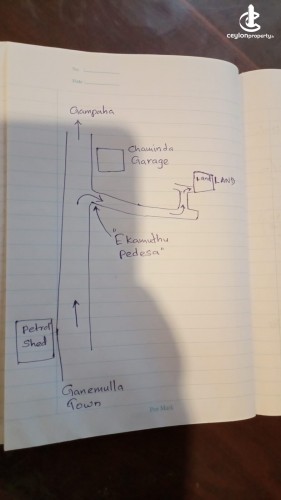 ceylonproperty.lk
Gampaha
Chaminda
Garage
Land
LAND
"Ekamuthu
Pedesa"
Petrol
Shed
Ganemulla
Town